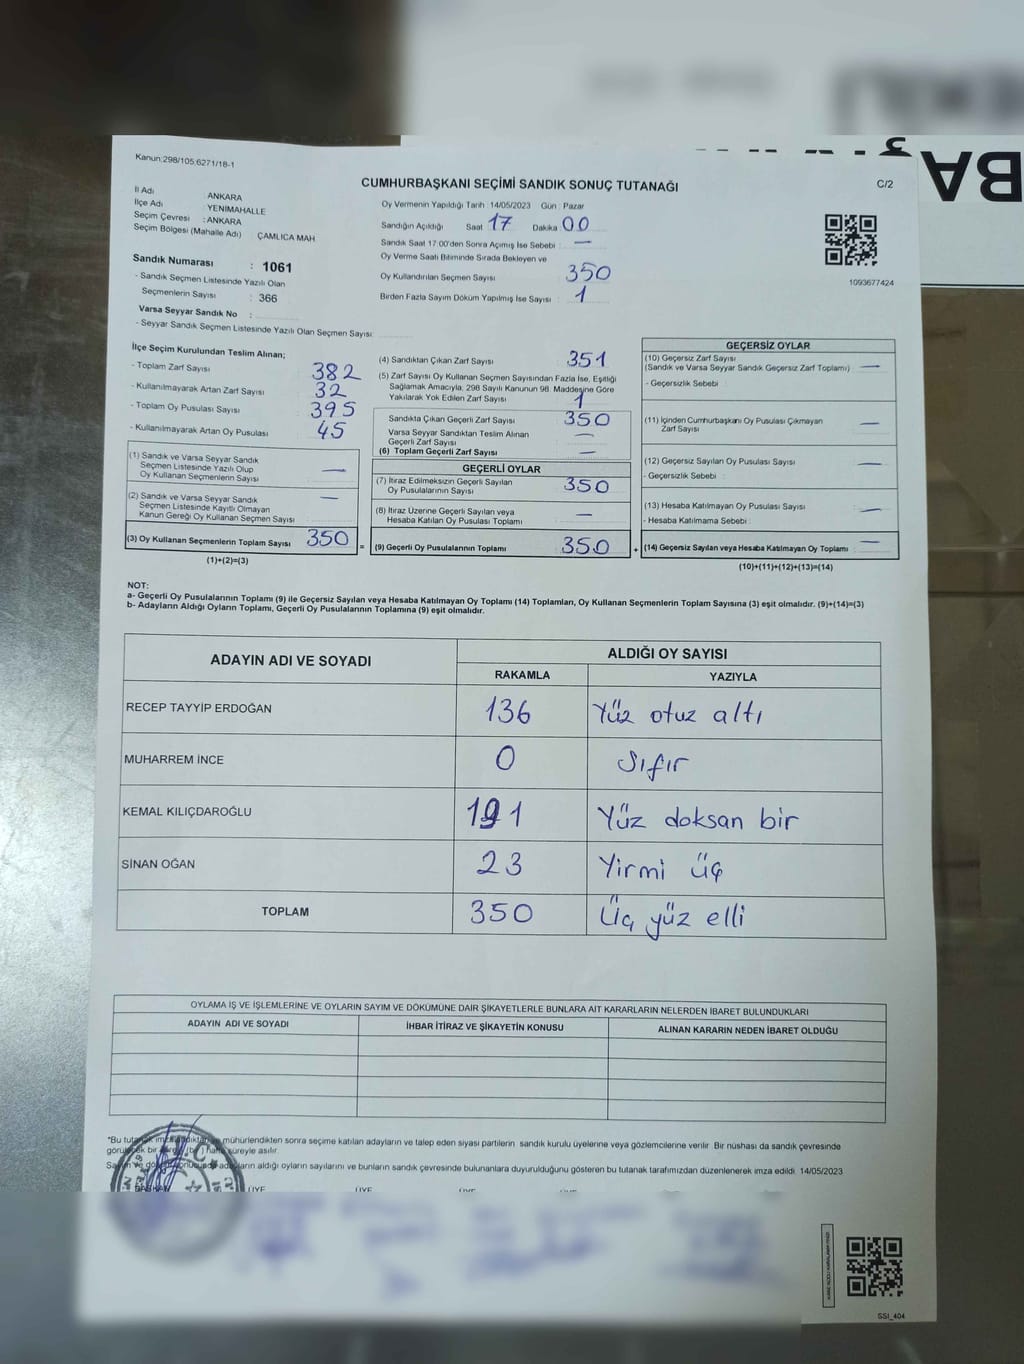 Kanun:298/105,6271/18-1
CUMHURBAŞKANI SEÇİMİ SANDIK SONUÇ TUTANAĞI
C/2
BA
İl Adı : ANKARA
İlçe Adı : YENİMAHALLE
Seçim Çevresi : ANKARA
Seçim Bölgesi (Mahalle Adı) ÇAMLICA MAH
Sandık Numarası : 1061
- Sandık Seçmen Listesinde Yazılı Olan
Seçmenlerin Sayısı : 366
Varsa Seyyar Sandık No :
- Seyyar Sandık Seçmen Listesinde Yazılı Olan Seçmen Sayısı:
Oy Vermenin Yapıldığı Tarih : 14/05/2023 Gün : Pazar
Sandığın Açıldığı Saat 17 Dakika 00
Sandık Saat 17:00'den Sonra Açımış İse Sebebi : —
Oy Verme Saati Bitiminde Sırada Bekleyen ve
Oy Kullandırılan Seçmen Sayısı 350
Birden Fazla Sayım Döküm Yapılmış İse Sayısı : 1
1093677424
İlçe Seçim Kurulundan Teslim Alınan;
- Toplam Zarf Sayısı 382
- Kullanılmayarak Artan Zarf Sayısı 32
- Toplam Oy Pusulası Sayısı 395
- Kullanılmayarak Artan Oy Pusulası 45
(1) Sandık ve Varsa Seyyar Sandık
Seçmen Listesinde Yazılı Olup
Oy Kullanan Seçmenlerin Sayısı —
(2) Sandık ve Varsa Seyyar Sandık
Seçmen Listesinde Kayıtlı Olmayan
Kanun Gereği Oy Kullanan Seçmen Sayısı —
(3) Oy Kullanan Seçmenlerin Toplam Sayısı 350
(1)+(2)=(3)
(4) Sandıktan Çıkan Zarf Sayısı 351
(5) Zarf Sayısı Oy Kullanan Seçmen Sayısından Fazla İse, Eşitliği
Sağlamak Amacıyla, 298 Sayılı Kanunun 98. Maddesine Göre
Yakılarak Yok Edilen Zarf Sayısı 1
Sandıkta Çıkan Geçerli Zarf Sayısı 350
Varsa Seyyar Sandıktan Teslim Alınan
Geçerli Zarf Sayısı —
(6) Toplam Geçerli Zarf Sayısı —
GEÇERLİ OYLAR
(7) İtiraz Edilmeksizin Geçerli Sayılan
Oy Pusulalarının Sayısı 350
(8) İtiraz Üzerine Geçerli Sayılan veya
Hesaba Katılan Oy Pusulası Toplamı —
= (9) Geçerli Oy Pusulalarının Toplamı 350 +
GEÇERSİZ OYLAR
(10) Geçersiz Zarf Sayısı
(Sandık ve Varsa Seyyar Sandık Geçersiz Zarf Toplamı) —
- Geçersizlik Sebebi :
(11) İçinden Cumhurbaşkanı Oy Pusulası Çıkmayan
Zarf Sayısı —
(12) Geçersiz Sayılan Oy Pusulası Sayısı —
- Geçersizlik Sebebi :
(13) Hesaba Katılmayan Oy Pusulası Sayısı —
- Hesaba Katılmama Sebebi :
(14) Geçersiz Sayılan veya Hesaba Katılmayan Oy Toplamı —
(10)+(11)+(12)+(13)=(14)
NOT:
a- Geçerli Oy Pusulalarının Toplamı (9) ile Geçersiz Sayılan veya Hesaba Katılmayan Oy Toplamı (14) Toplamları, Oy Kullanan Seçmenlerin Toplam Sayısına (3) eşit olmalıdır. (9)+(14)=(3)
b- Adayların Aldığı Oyların Toplamı, Geçerli Oy Pusulalarının Toplamına (9) eşit olmalıdır.
ADAYIN ADI VE SOYADI ALDIĞI OY SAYISI
RAKAMLA YAZIYLA
RECEP TAYYİP ERDOĞAN 136 Yüz otuz altı
MUHARREM İNCE 0 Sıfır
KEMAL KILIÇDAROĞLU 191 Yüz doksan bir
SİNAN OĞAN 23 Yirmi üç
TOPLAM 350 Üç yüz elli
OYLAMA İŞ VE İŞLEMLERİNE VE OYLARIN SAYIM VE DÖKÜMÜNE DAİR ŞİKAYETLERLE BUNLARA AİT KARARLARIN NELERDEN İBARET BULUNDUKLARI
ADAYIN ADI VE SOYADI İHBAR İTİRAZ VE ŞİKAYETİN KONUSU ALINAN KARARIN NEDEN İBARET OLDUĞU
*Bu mühürlendikten sonra seçime katılan adayların ve talep eden siyasi partilerin sandık kurulu üyelerine veya gözlemcilerine verilir. Bir nüshası da sandık çevresinde
süreyle asılır.
aldığı oyların sayılarını ve bunların sandık çevresinde bulunanlara duyurulduğunu gösteren bu tutanak tarafımızdan düzenlenerek imza edildi. 14/05/2023
BAŞKAN ÜYE ÜYE ÜYE ÜYE
SSI_404